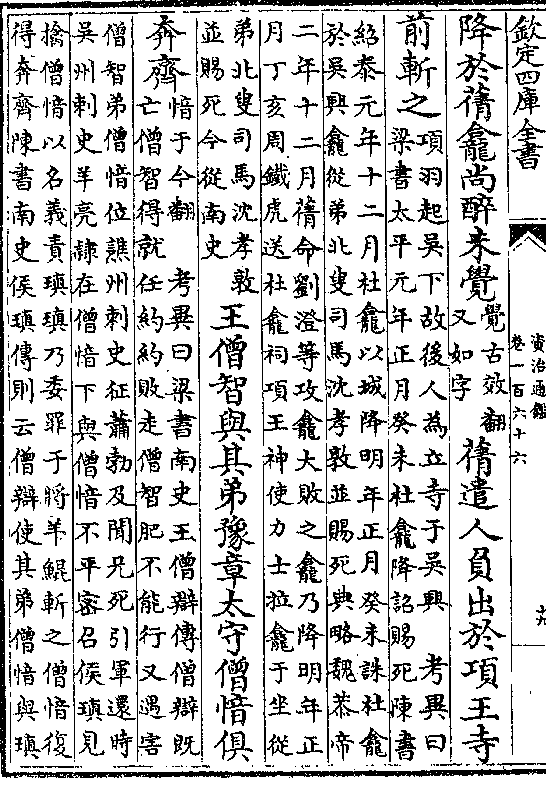 欽定四庫全書
資治通鑑
卷一百六十六
十九
降於蒨龕尚醉未覺
覺古效翻
又如字
蒨遣人負出於項王寺
前斬之
項羽起吳下故後人為立寺于吳興 考異曰
梁書太平元年正月癸未杜龕降詔賜死陳書
紹泰元年十二月杜龕以城降明年正月癸未誅杜龕
於吳興龕從弟北叟司馬沈孝敦並賜死典略魏恭帝
二年十二月蒨命劉澄等攻龕大敗之龕乃降明年正
月丁亥周鐵虎送杜龕祠項王神使力士拉龕于坐從
弟北叟司馬沈孝敦
並賜死今從南史
王僧智與其弟豫章太守僧愔俱
奔齊
愔于今翻 考異曰梁書南史王僧辯傳僧辯既
亡僧智得就任約約敗走僧智肥不能行又遇害
僧智弟僧愔位譙州刺史征蕭勃及聞兄死引軍還時
吳州刺史羊亮隷在僧愔下與僧愔不平密召侯瑱見
擒僧愔以名義責瑱瑱乃委罪于將羊鯤斬之僧愔復
得奔齊陳書南史侯瑱傳則云僧辯使其弟僧愔與瑱